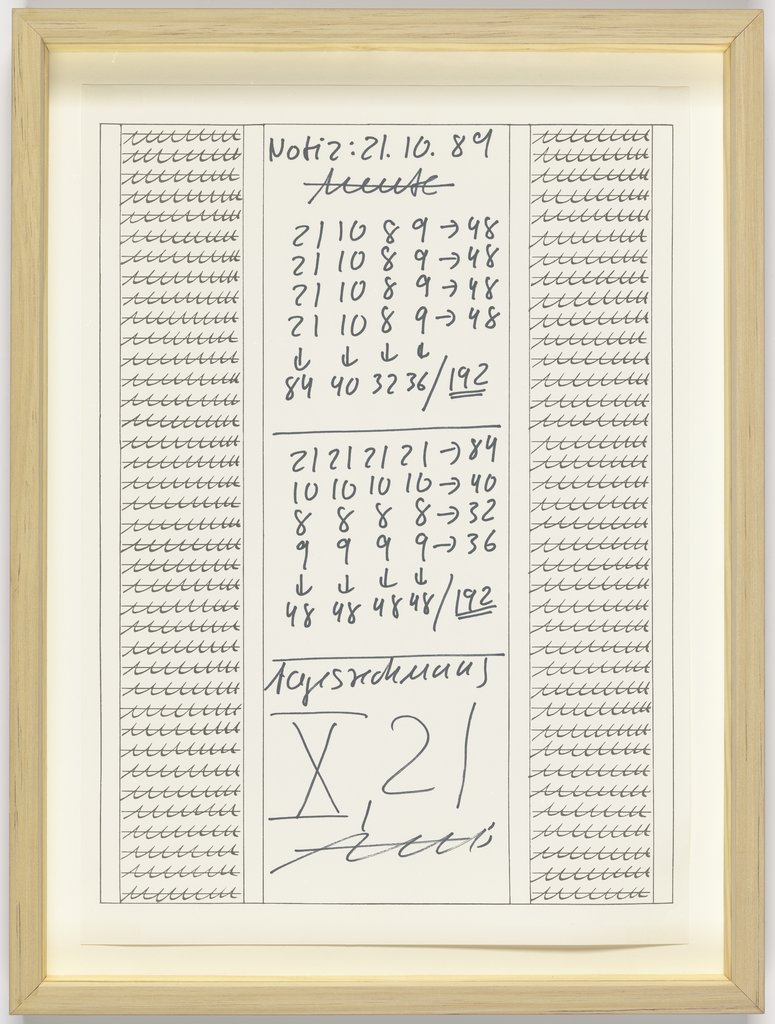 Notiz: 21. 10. 89
heute
21 10 8 9 → 48
21 10 8 9 → 48
21 10 8 9 → 48
21 10 8 9 → 48
↓ ↓ ↓ ↓
84 40 32 36 / 192
21 21 21 21 → 84
10 10 10 10 → 40
8 8 8 8 → 32
9 9 9 9 → 36
↓ ↓ ↓ ↓
48 48 48 48 / 192
tagesrechnung
X, 21